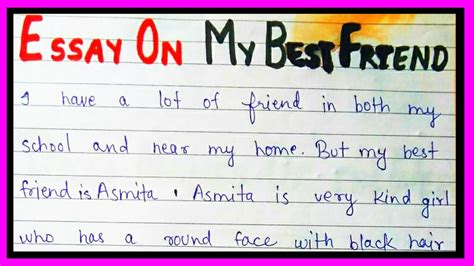 ESSAY ON MY BEST FRIEND
I have a lot of friend in both my
school and near my home. But my best
friend is Asmita. Asmita is very kind girl
who has a round face with black hair